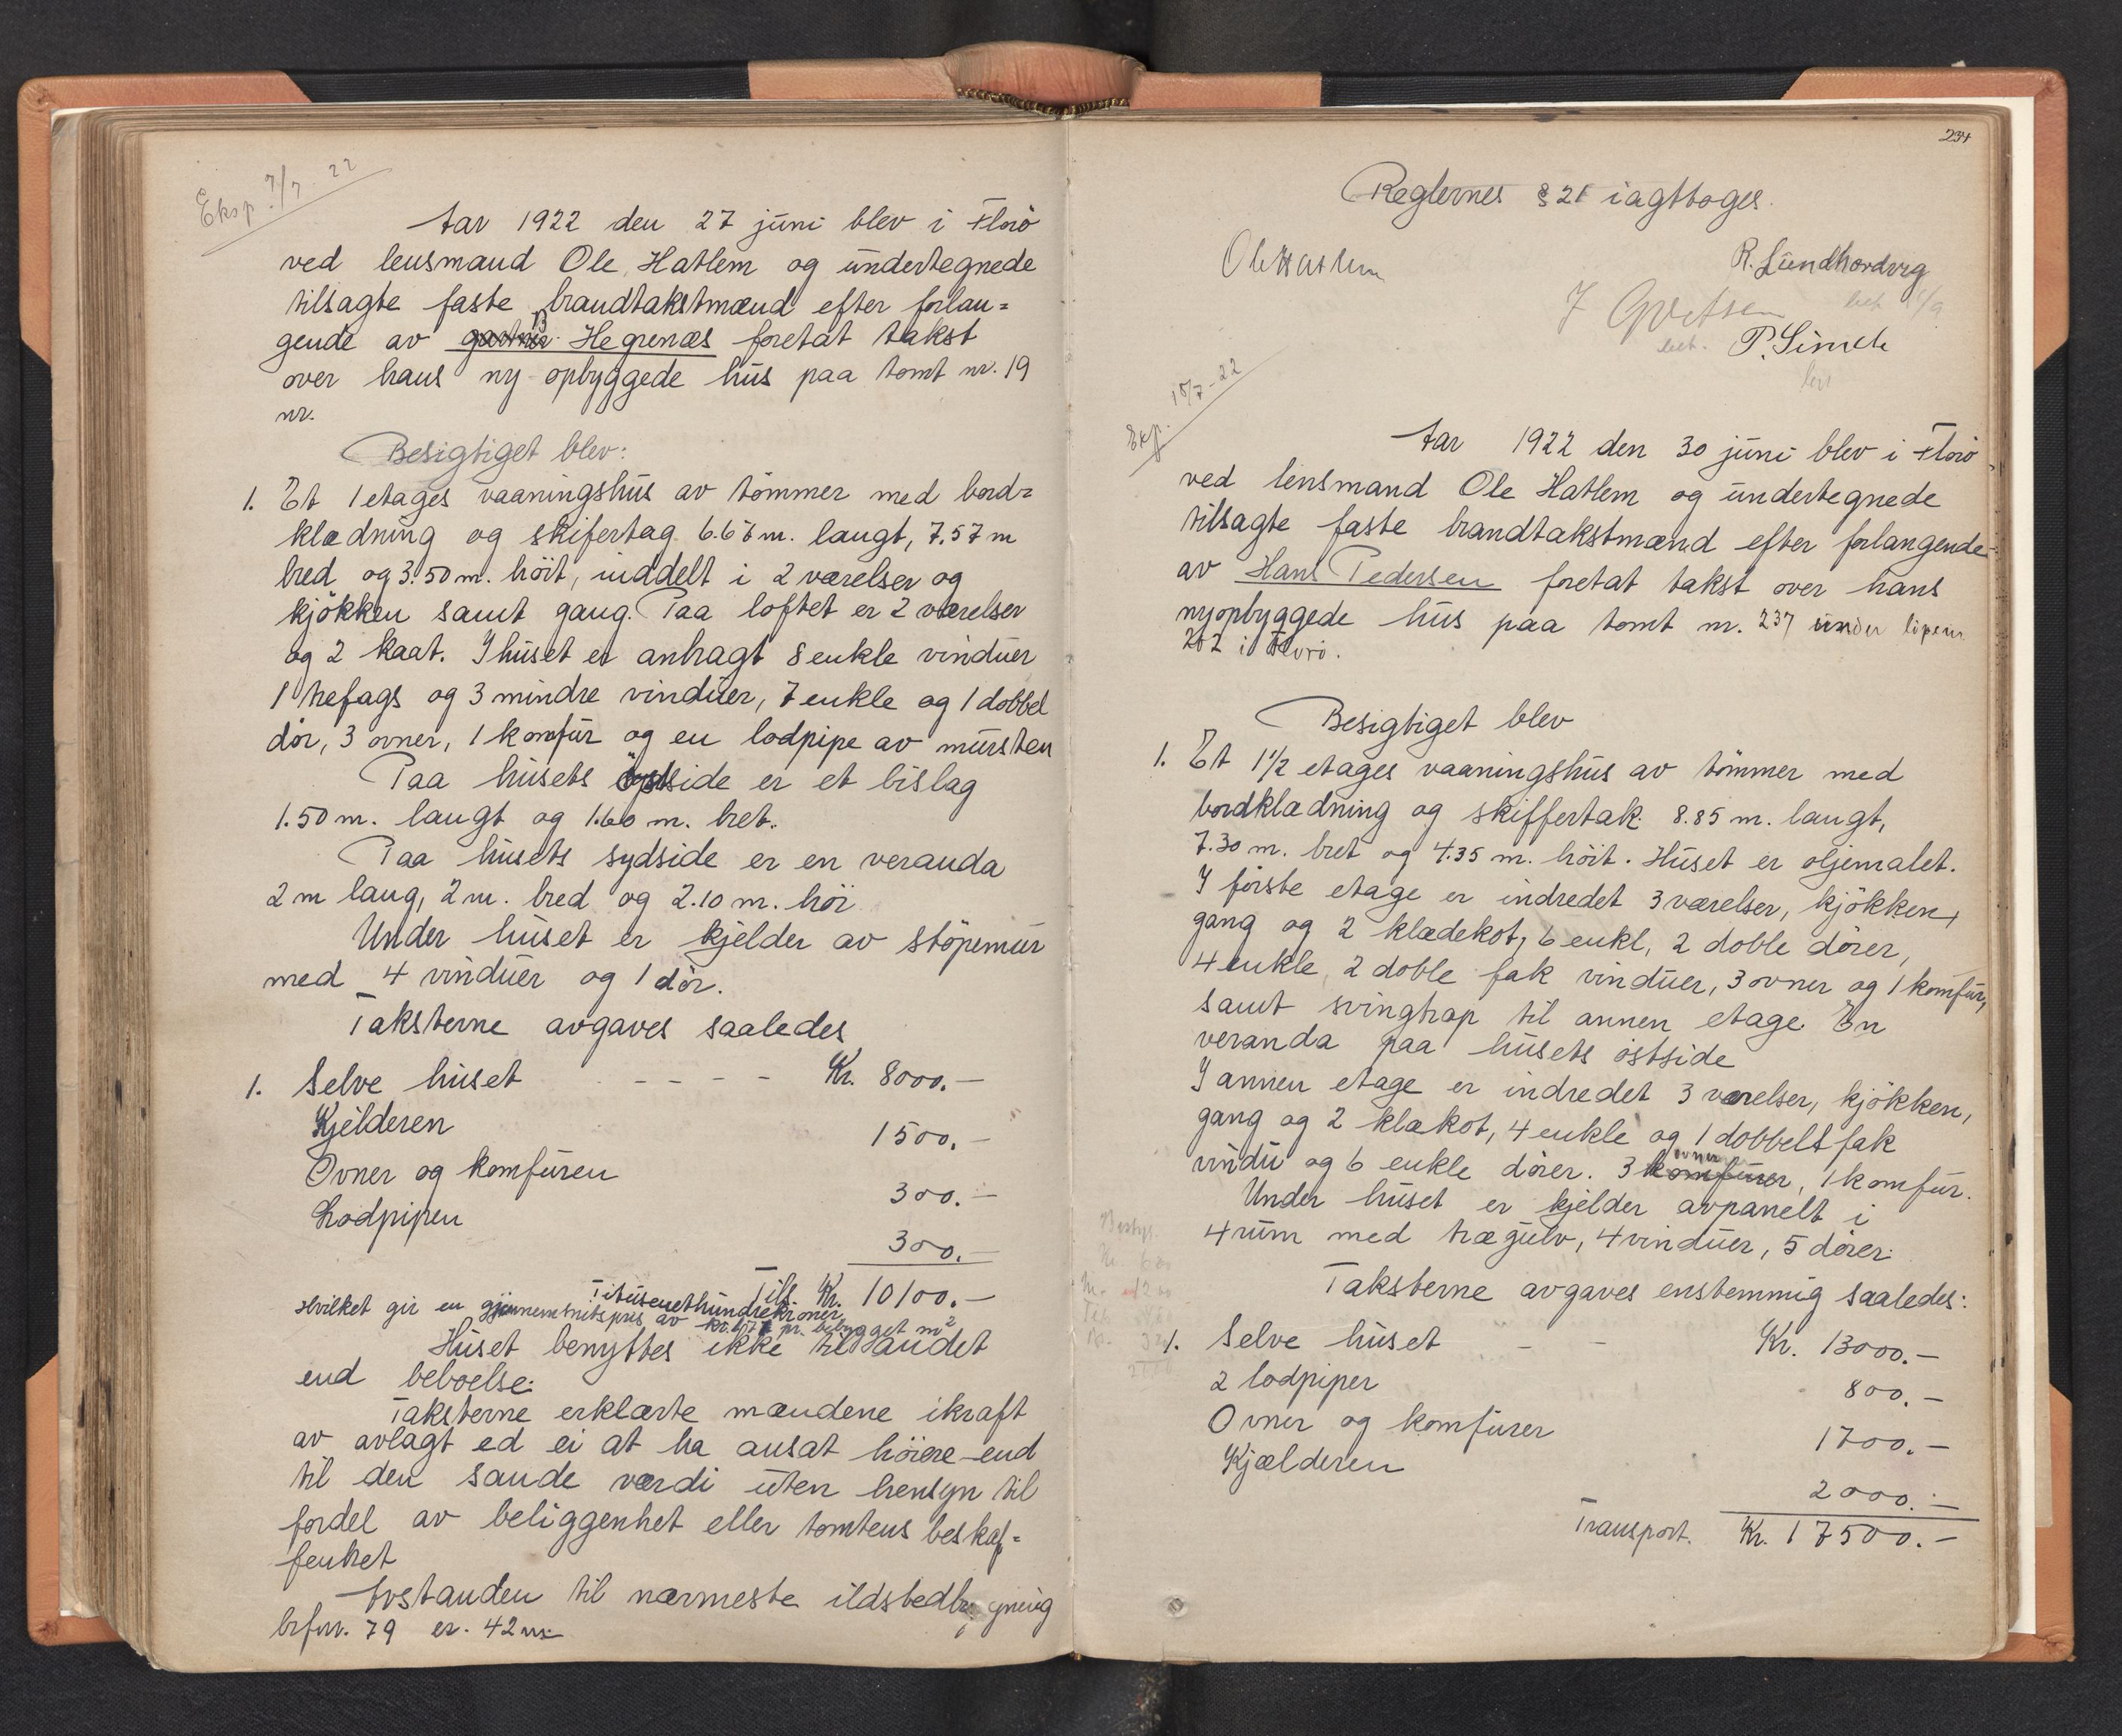 Eksp. 7/7-22
Aar 1922 den 27 juni blev i Florö
ved lensmand Ole Hatlem og undertegnede
tilsagte faste brandtakstmænd efter forlan=
gende av B. Hegrenæs foretat takst
over hans ny opbyggede hus paa tomt nr. 19
nr.
Besigtiget blev:
1. Et 1 etages vaaningshus av tömmer med bord=
klædning og skifertag 6.67 m. langt, 7.57 m
bred og 3.50 m. höit, inddelt i 2 værelser og
kjökken samt gang. Paa loftet er 2 værelser
og 2 kaat. I huset er anbragt 8 enkle vinduer
1 trefags og 3 mindre vinduer, 7 enkle og 1 dobbel
dör, 3 ovner, 1 komfur og en lodpipe av mursten
Paa husets östside er et bislag
1.50 m. langt og 1.60 m. bret.
Paa husets sydside er en veranda
2 m lang, 2 m. bred og 2.10 m. höi
Under huset er kjelder av stöpemur
med 4 vinduer og 1 dör.
Taksterne avgaves saaledes
1. Selve huset - - - - Kr. 8000.-
Kjelderen 1500.-
Ovner og komfuren 300.-
Lodpipen 300.-
Tils. Kr. 10100.-
Titusenethundrekroner
Hvilket gir en gjennemsnitspris av kr. pr. bebygget m²
Huset benyttes ikke til andet
end beboelse.
Taksterne erklærte mændene ikraft
av avlagt ed ei at ha ansat höiere end
til den sande værdi uten hensyn til
fordel av beliggenhet eller tomtens beskaf=
fenhet
Avstanden til nærmeste ildstedbygning
brfnr. 79 er. 42 m.
234
Reglernes § 21 iagttoges.
Ole Hatlem
R. Sundhordvig
P. Simek
Exp. 10/7-22
Aar 1922 den 30 juni blev i Florö
ved lensmand Ole Hatlem og undertegnede
tilsagte faste brandtakstmænd efter forlangende
av Hans Pedersen foretat takst over hans
nyopbyggede hus paa tomt nr. 237 under löpenr
202 i Florö.
Besigtiget blev
1. Et 1½ etages vaaningshus av tömmer med
bordklædning og skiffertak 8.85 m. langt,
7.30 m. bret og 4.35 m. höit. Huset er oljemalet.
I förste etage er indredet 3 værelser, kjökken,
gang og 2 klædekot, 6 enkl, 2 doble dörer,
4 enkle, 2 doble fak vinduer, 3 ovner og 1 komfur,
samt svingtrap til annen etage. En
veranda paa husets östside
I annen etage er indredet 3 værelser, kjökken,
gang og 2 klækot, 4 enkle og 1 dobbelt fak
vindu og 6 enkle dörer. 3 komfurer ovner, 1 komfur.
Under huset er kjelder avpanelt i
4 rum med trægulv, 4 vinduer, 5 dörer.
Taksterne avgaves enstemmig saaledes:
1. Selve huset - - Kr. 13000.-
2 lodpiper 800.-
Ovner og komfurer 1700.-
Kjælderen 2000.-
Transport. Kr. 17500.-